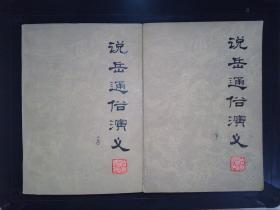 说岳通俗演义
上
说岳通俗演义
下